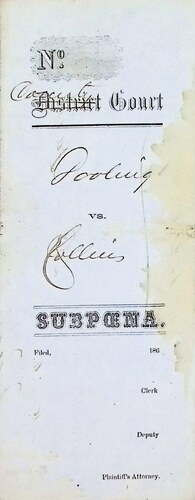 No.
County
District Court
Dooling
vs.
Collins
SUBPŒNA.
Filed, 186
Clerk
Deputy
Plaintiff's Attorney.